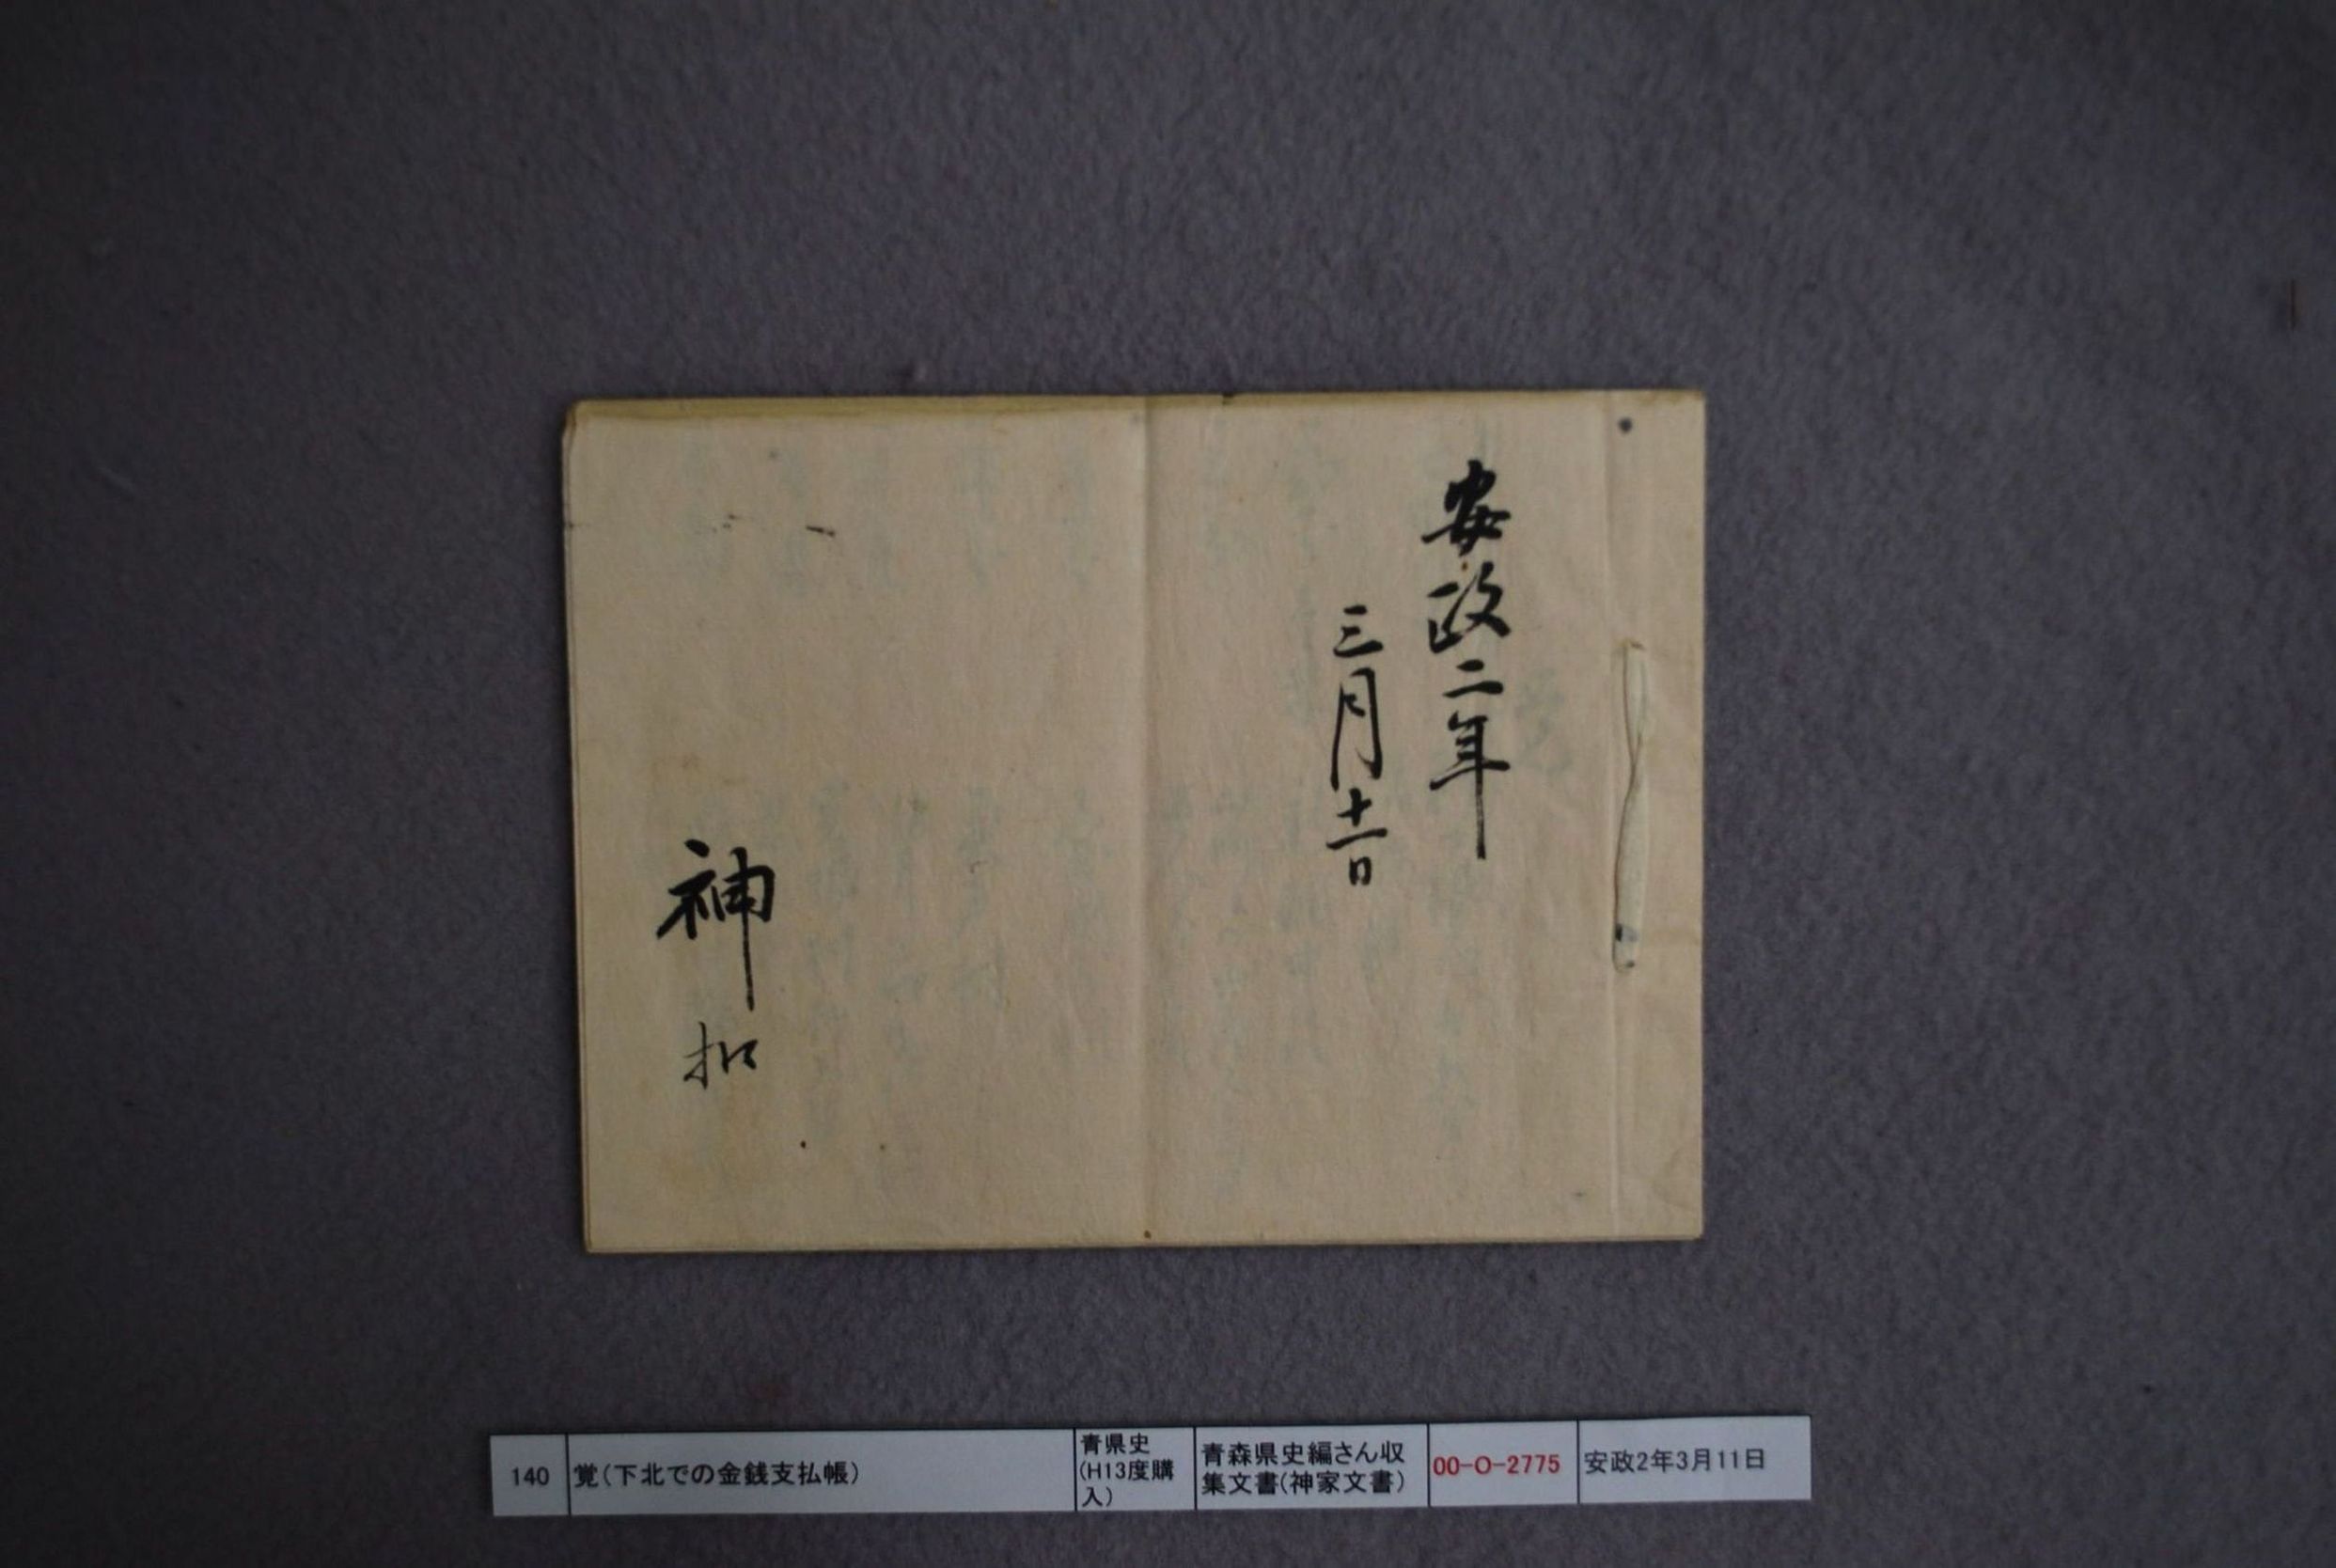 安政二年
三月十一日
神
扣
140
覚(下北での金銭支払帳)
青県史
(H13度購
入)
青森県史編さん収
集文書(神家文書)
00-O-2775
安政2年3月11日